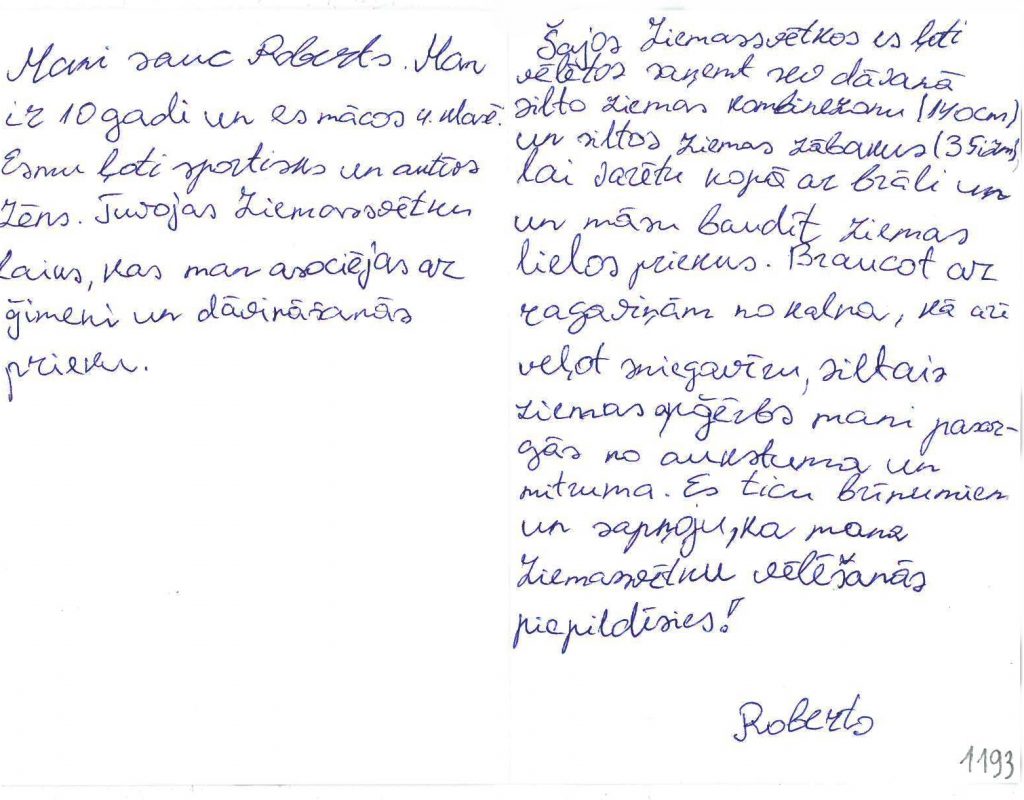 Mani sauc Roberts. Man
ir 10 gadi un es mācos 4. klasē.
Esmu ļoti sportisks un aktīvs
zēns. Tuvojas Ziemassvētku
laiks, kas man asociējas ar
ģimeni un dāvināšanās
prieku.
Šajos Ziemassvētkos es ļoti
vēlētos saņemt sev dāvanā
silto ziemas kombinezonu (140cm)
un siltos ziemas zābakus (35izm)
lai varētu kopā ar brāli un
un māsu baudīt ziemas
lielos priekus. Braucot ar
ragaviņām no kalna, kā arī
veļot sniegavīru, siltais
ziemas apģērbs mani pasar-
gās no aukstuma un
mitruma. Es ticu brīnumiem
un sapņoju, ka mana
Ziemassvētku vēlēšanās
piepildīsies!
Roberts
1193